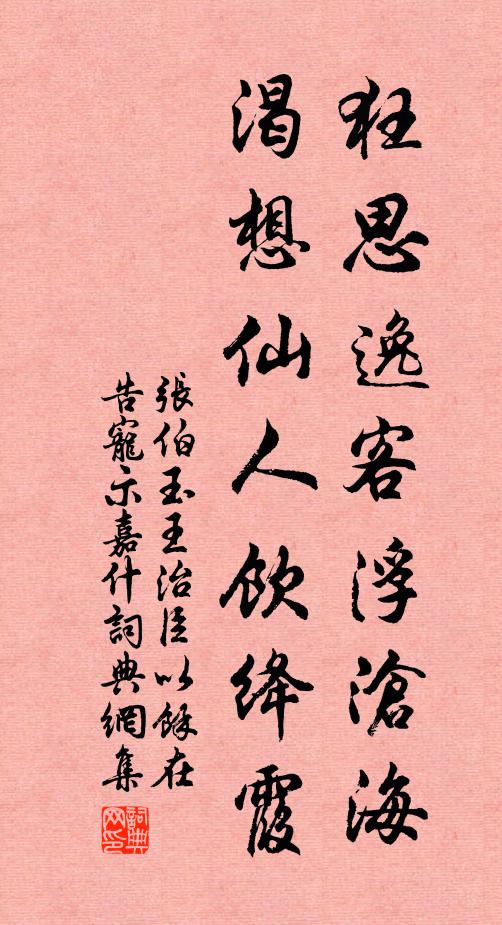 狂思逸客浮滄海
渴想仙人飲絳霞
張伯玉王治臣以餘在
告寵示嘉什詞典網集
詞典
网印